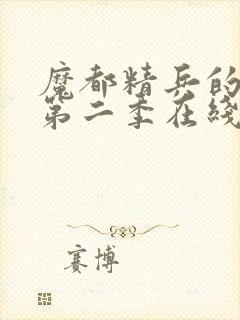 魔都精兵的
第二季在线
赛博